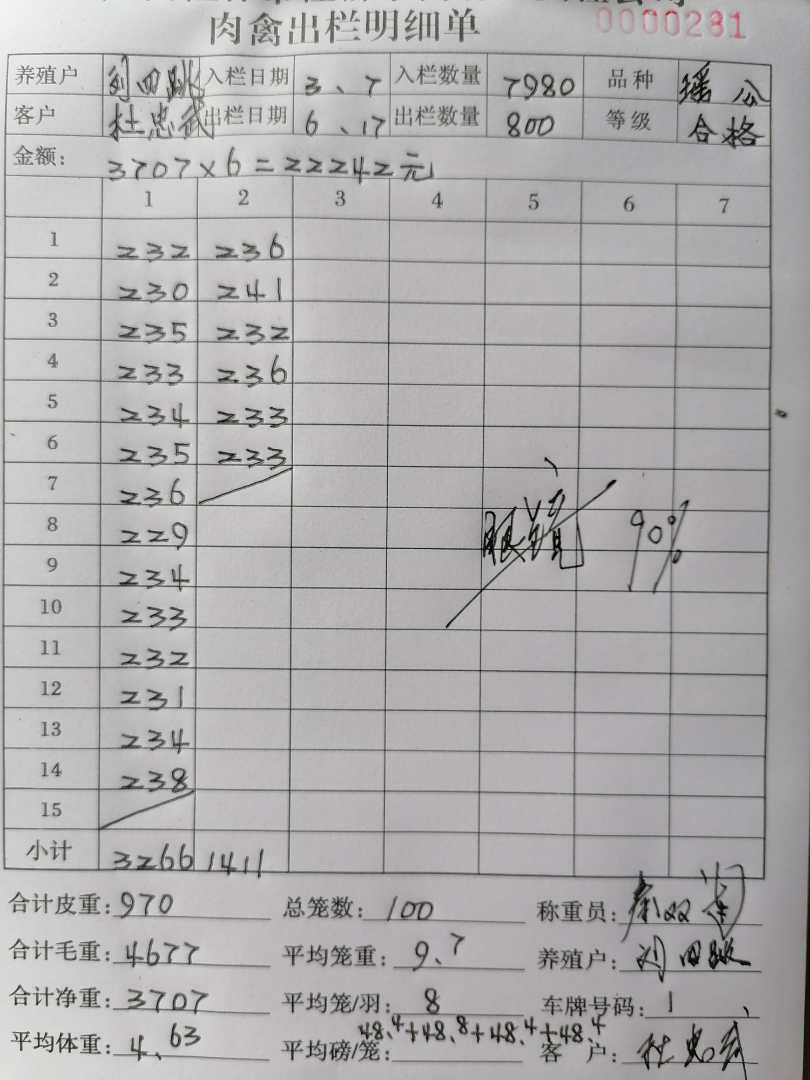 0000281
肉禽出栏明细单
养殖户 刘四跳 入栏日期 3、7 入栏数量 7980 品种 瑶公
客户 杜忠武 出栏日期 6、17 出栏数量 800 等级 合格
金额: 3707×6=22242元
1 2 3 4 5 6 7
1 232 236
2 230 241
3 235 232
4 233 236
5 234 233
6 235 233
7 236
8 229 眼镜 90%
9 234
10 233
11 232
12 231
13 234
14 238
15
小计 3266 1411
合计皮重: 970 总笼数: 100 称重员:
合计毛重: 4677 平均笼重: 9.7 养殖户: 刘四跳
合计净重: 3707 平均笼/羽: 8 车牌号码: 1
平均体重: 4.63 平均磅/笼: 48.4+48.8+48.4+48.4 客户: 杜忠武